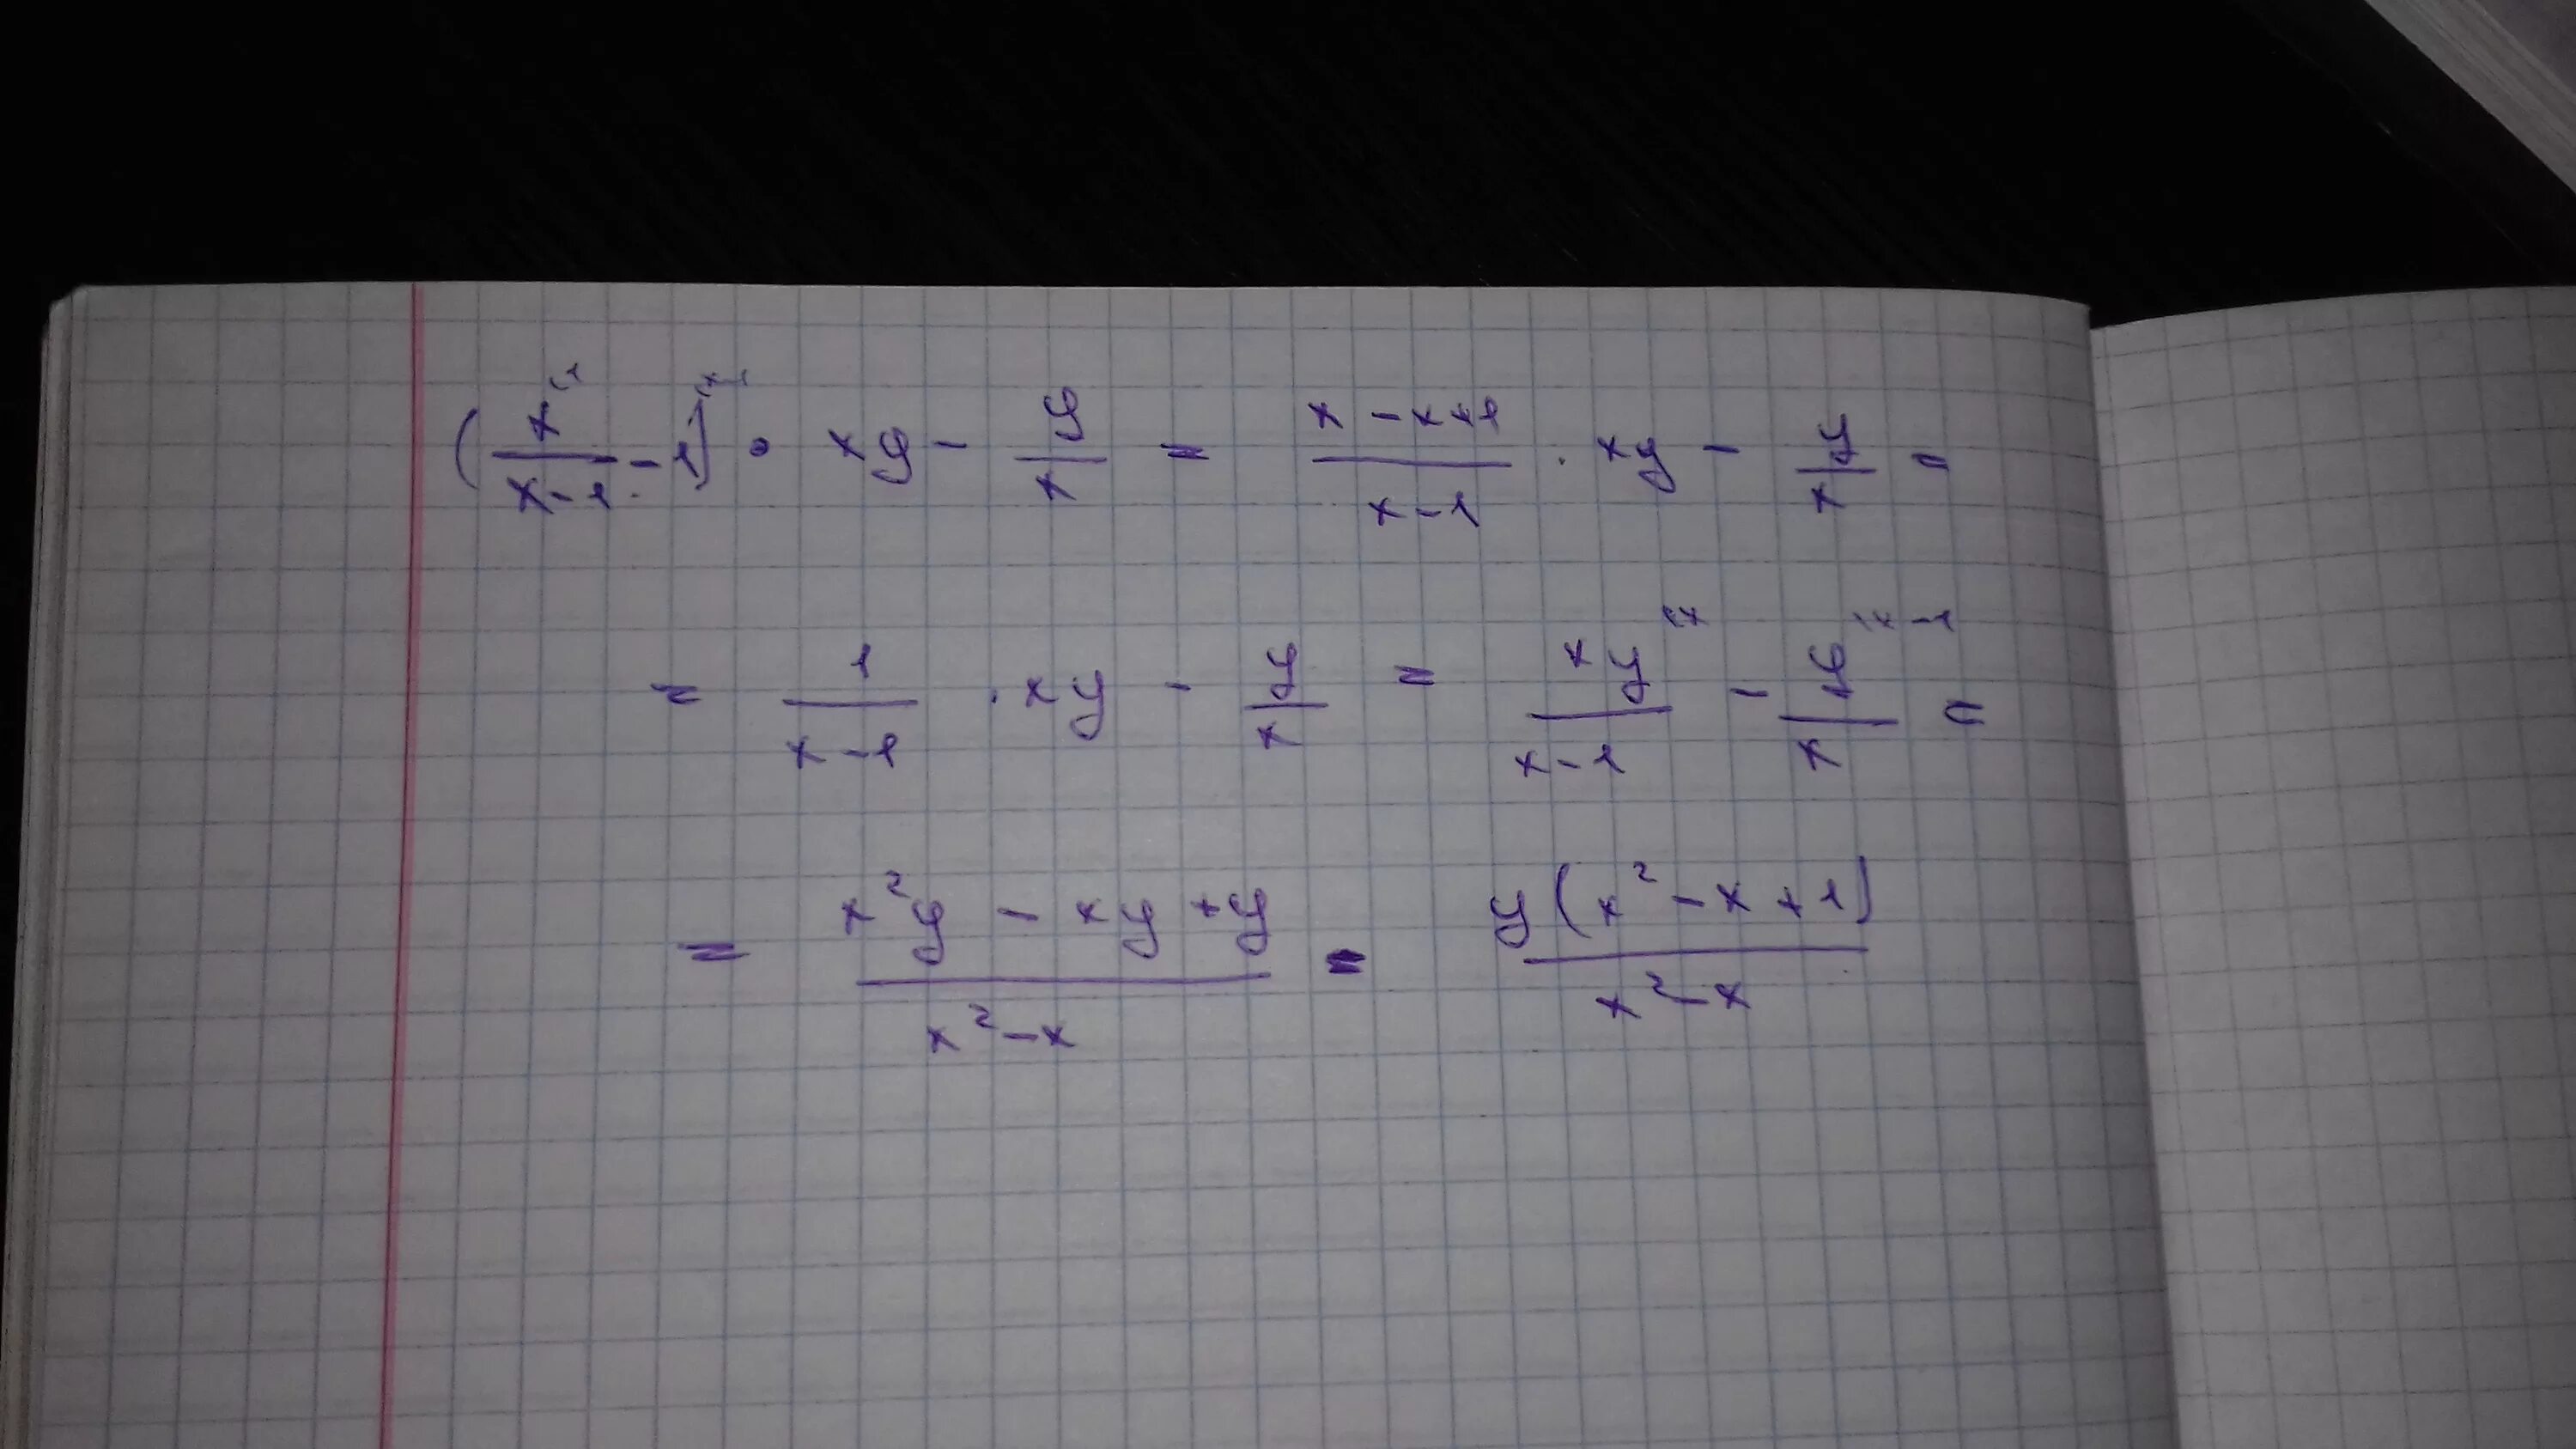 (x⁽¹/(x-1) - 1)⁽ˣ⁻¹ · xy - y/x = (x - x+1)/(x-1) · xy - y/x =
= 1/(x-1) · xy - y/x = xy⁽ˣ/(x-1) - y⁽ˣ⁻¹/x =
= (x²y - xy + y)/(x²-x) = y(x² - x + 1)/(x²-x)